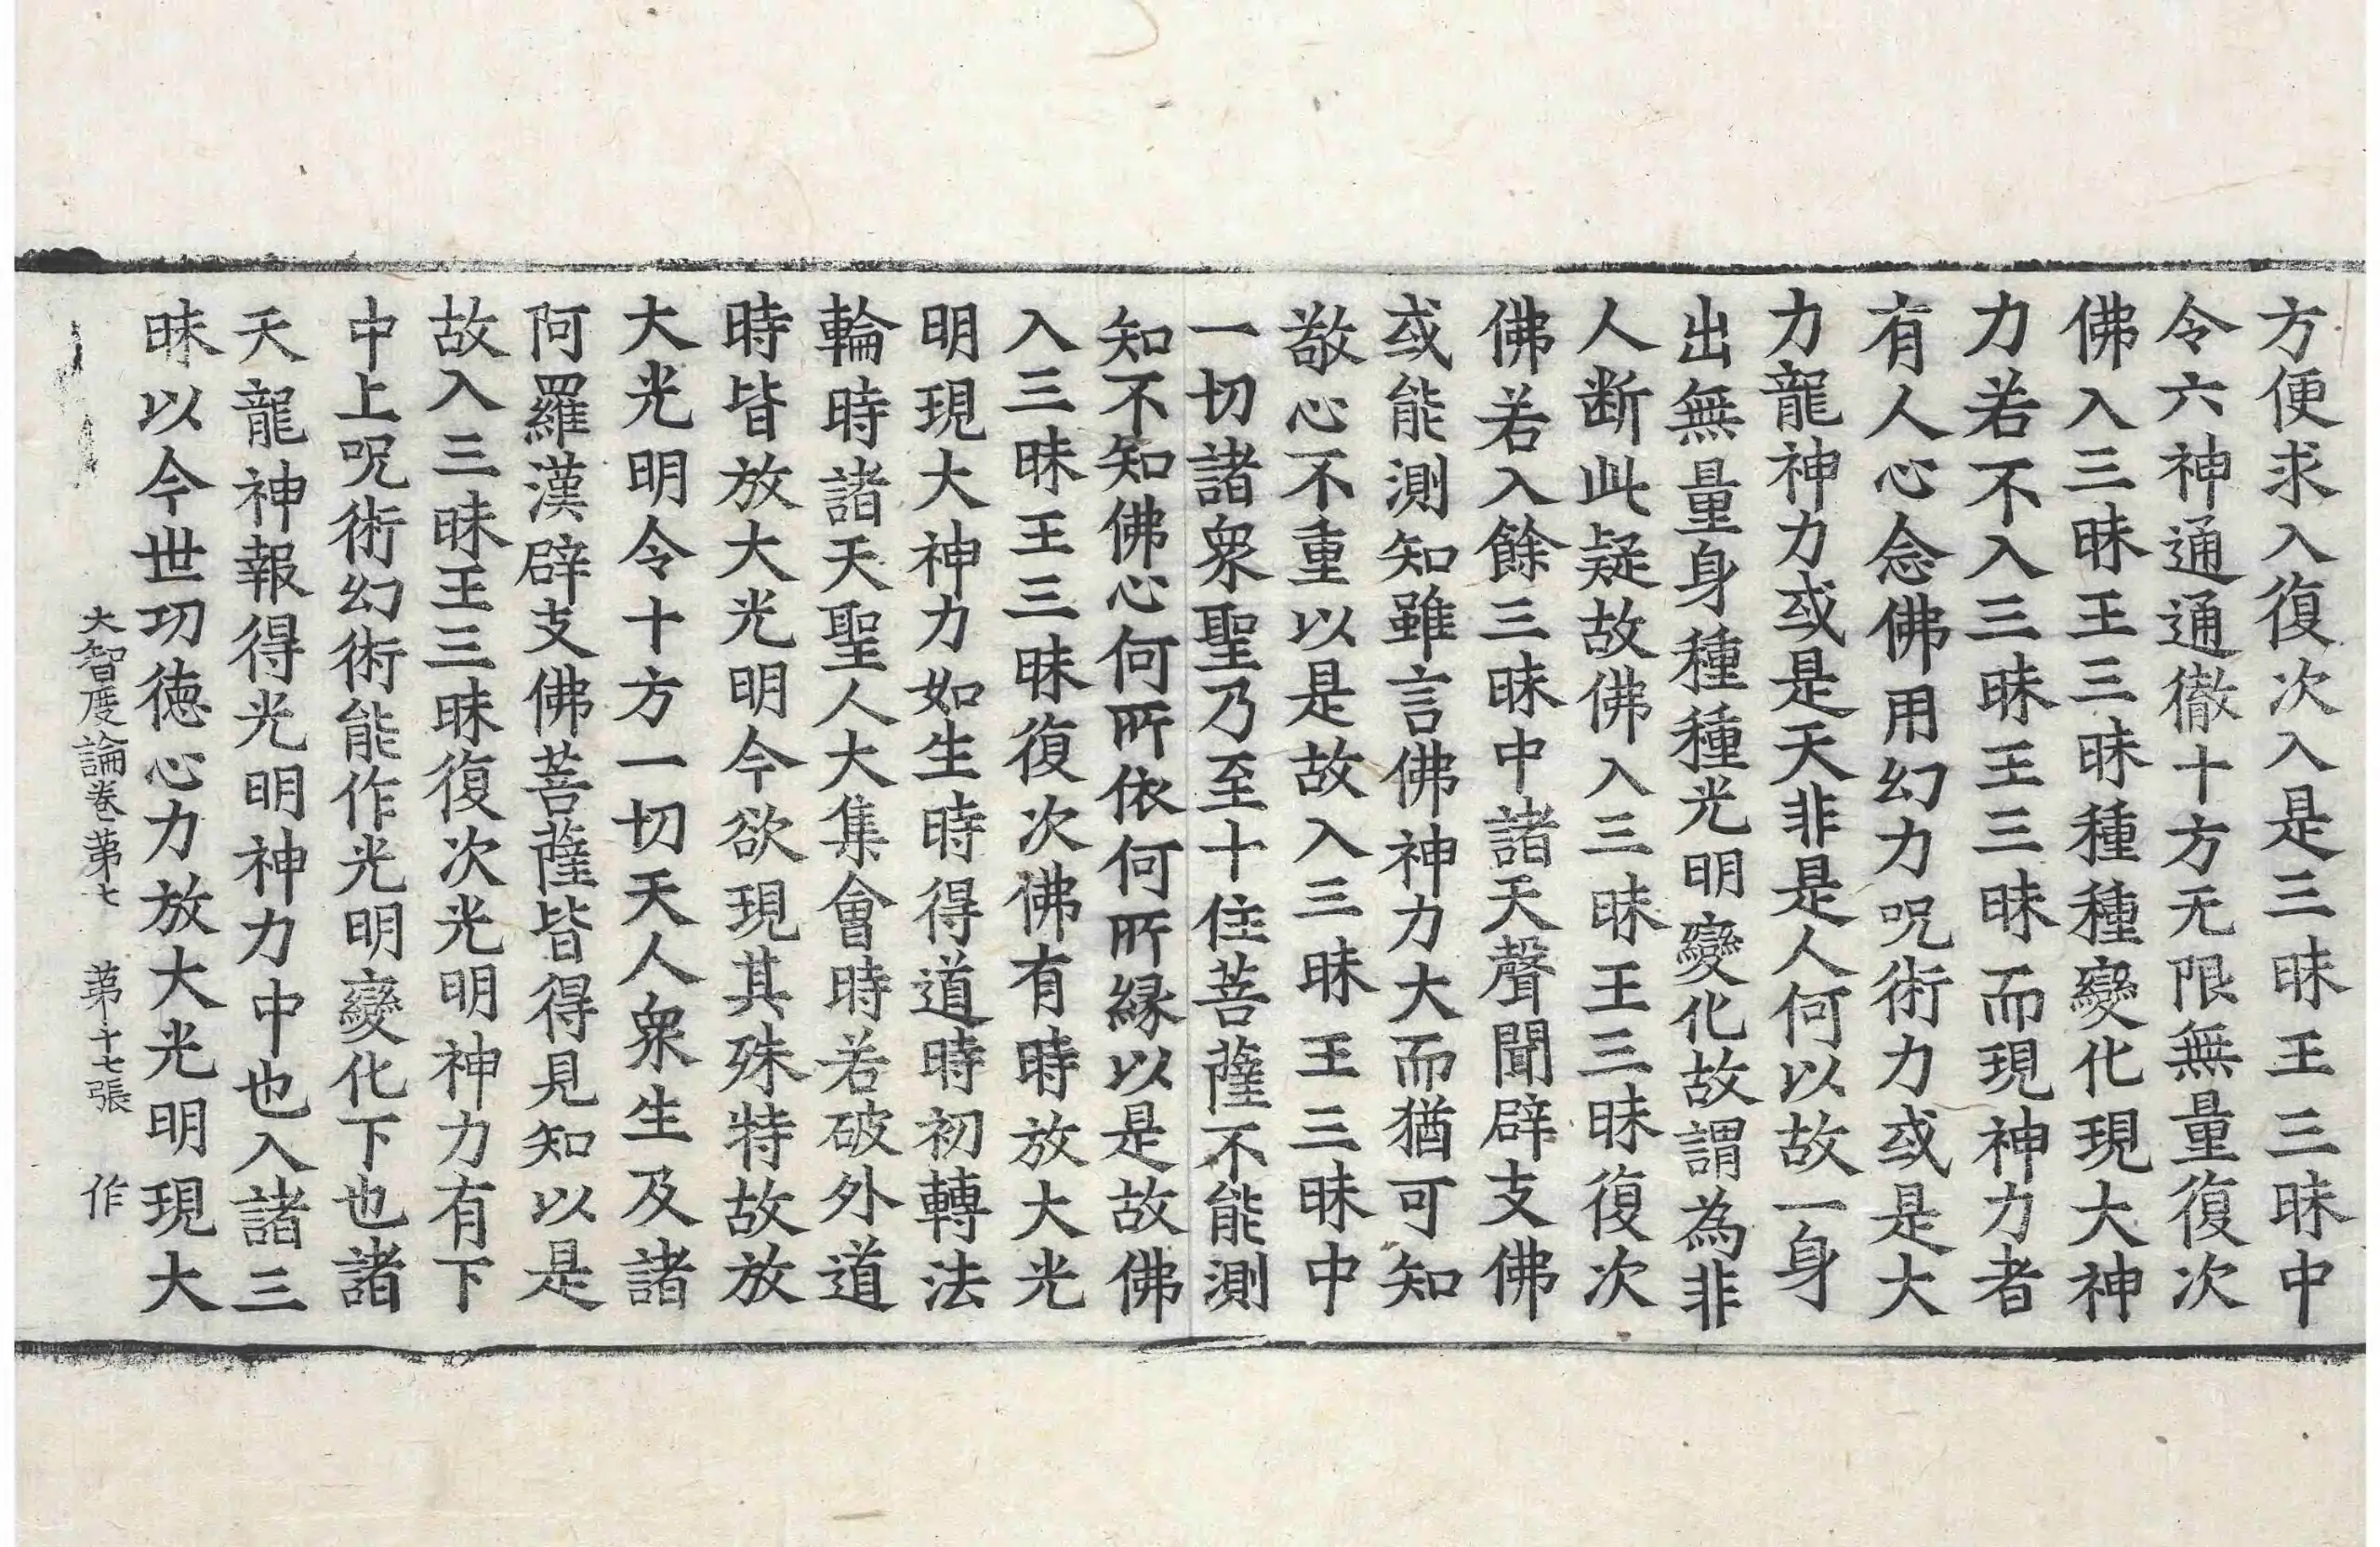 方便求入復次入是三昧王三昧中
令六神通通徹十方无限無量復次
佛入三昧王三昧種種變化現大神
力若不入三昧王三昧而現神力者
有人心念佛用幻力呪術力或是大
力龍神力或是天非是人何以故一身
出無量身種種光明變化故謂為非
人断此疑故佛入三昧王三昧復次
佛若入餘三昧中諸天聲聞辟支佛
或能測知雖言佛神力大而猶可知
敬心不重以是故入三昧王三昧中
一切諸衆聖乃至十住菩薩不能測
知不知佛心何所依何所縁以是故佛
入三昧王三昧復次佛有時放大光
明現大神力如生時得道時初轉法
輪時諸天聖人大集會時若破外道
時皆放大光明今欲現其殊特故放
大光明令十方一切天人衆生及諸
阿羅漢辟支佛菩薩皆得見知以是
故入三昧王三昧復次光明神力有下
中上呪術幻術能作光明變化下也諸
天龍神報得光明神力中也入諸三
昧以今世功徳心力放大光明現大
大智度論卷苐七 苐十七張 作